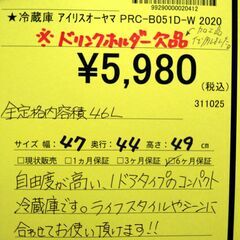 9929000020412
★冷蔵庫 アイリスオーヤマ PRC-B051D-W 2020
※ドリンクホルダー欠品
¥5,980
(税込)
311025
全定格内容積46L
サイズ 幅: 47 奥行: 44 高さ: 49 cm
□現状販売 □1ヵ月保証 □3ヶ月保証 ☑6ヶ月保証
自由度が高い、1ドアタイプのコンパクト
冷蔵庫です。ライフスタイルやシーンに
合わせてお使い頂けます!!